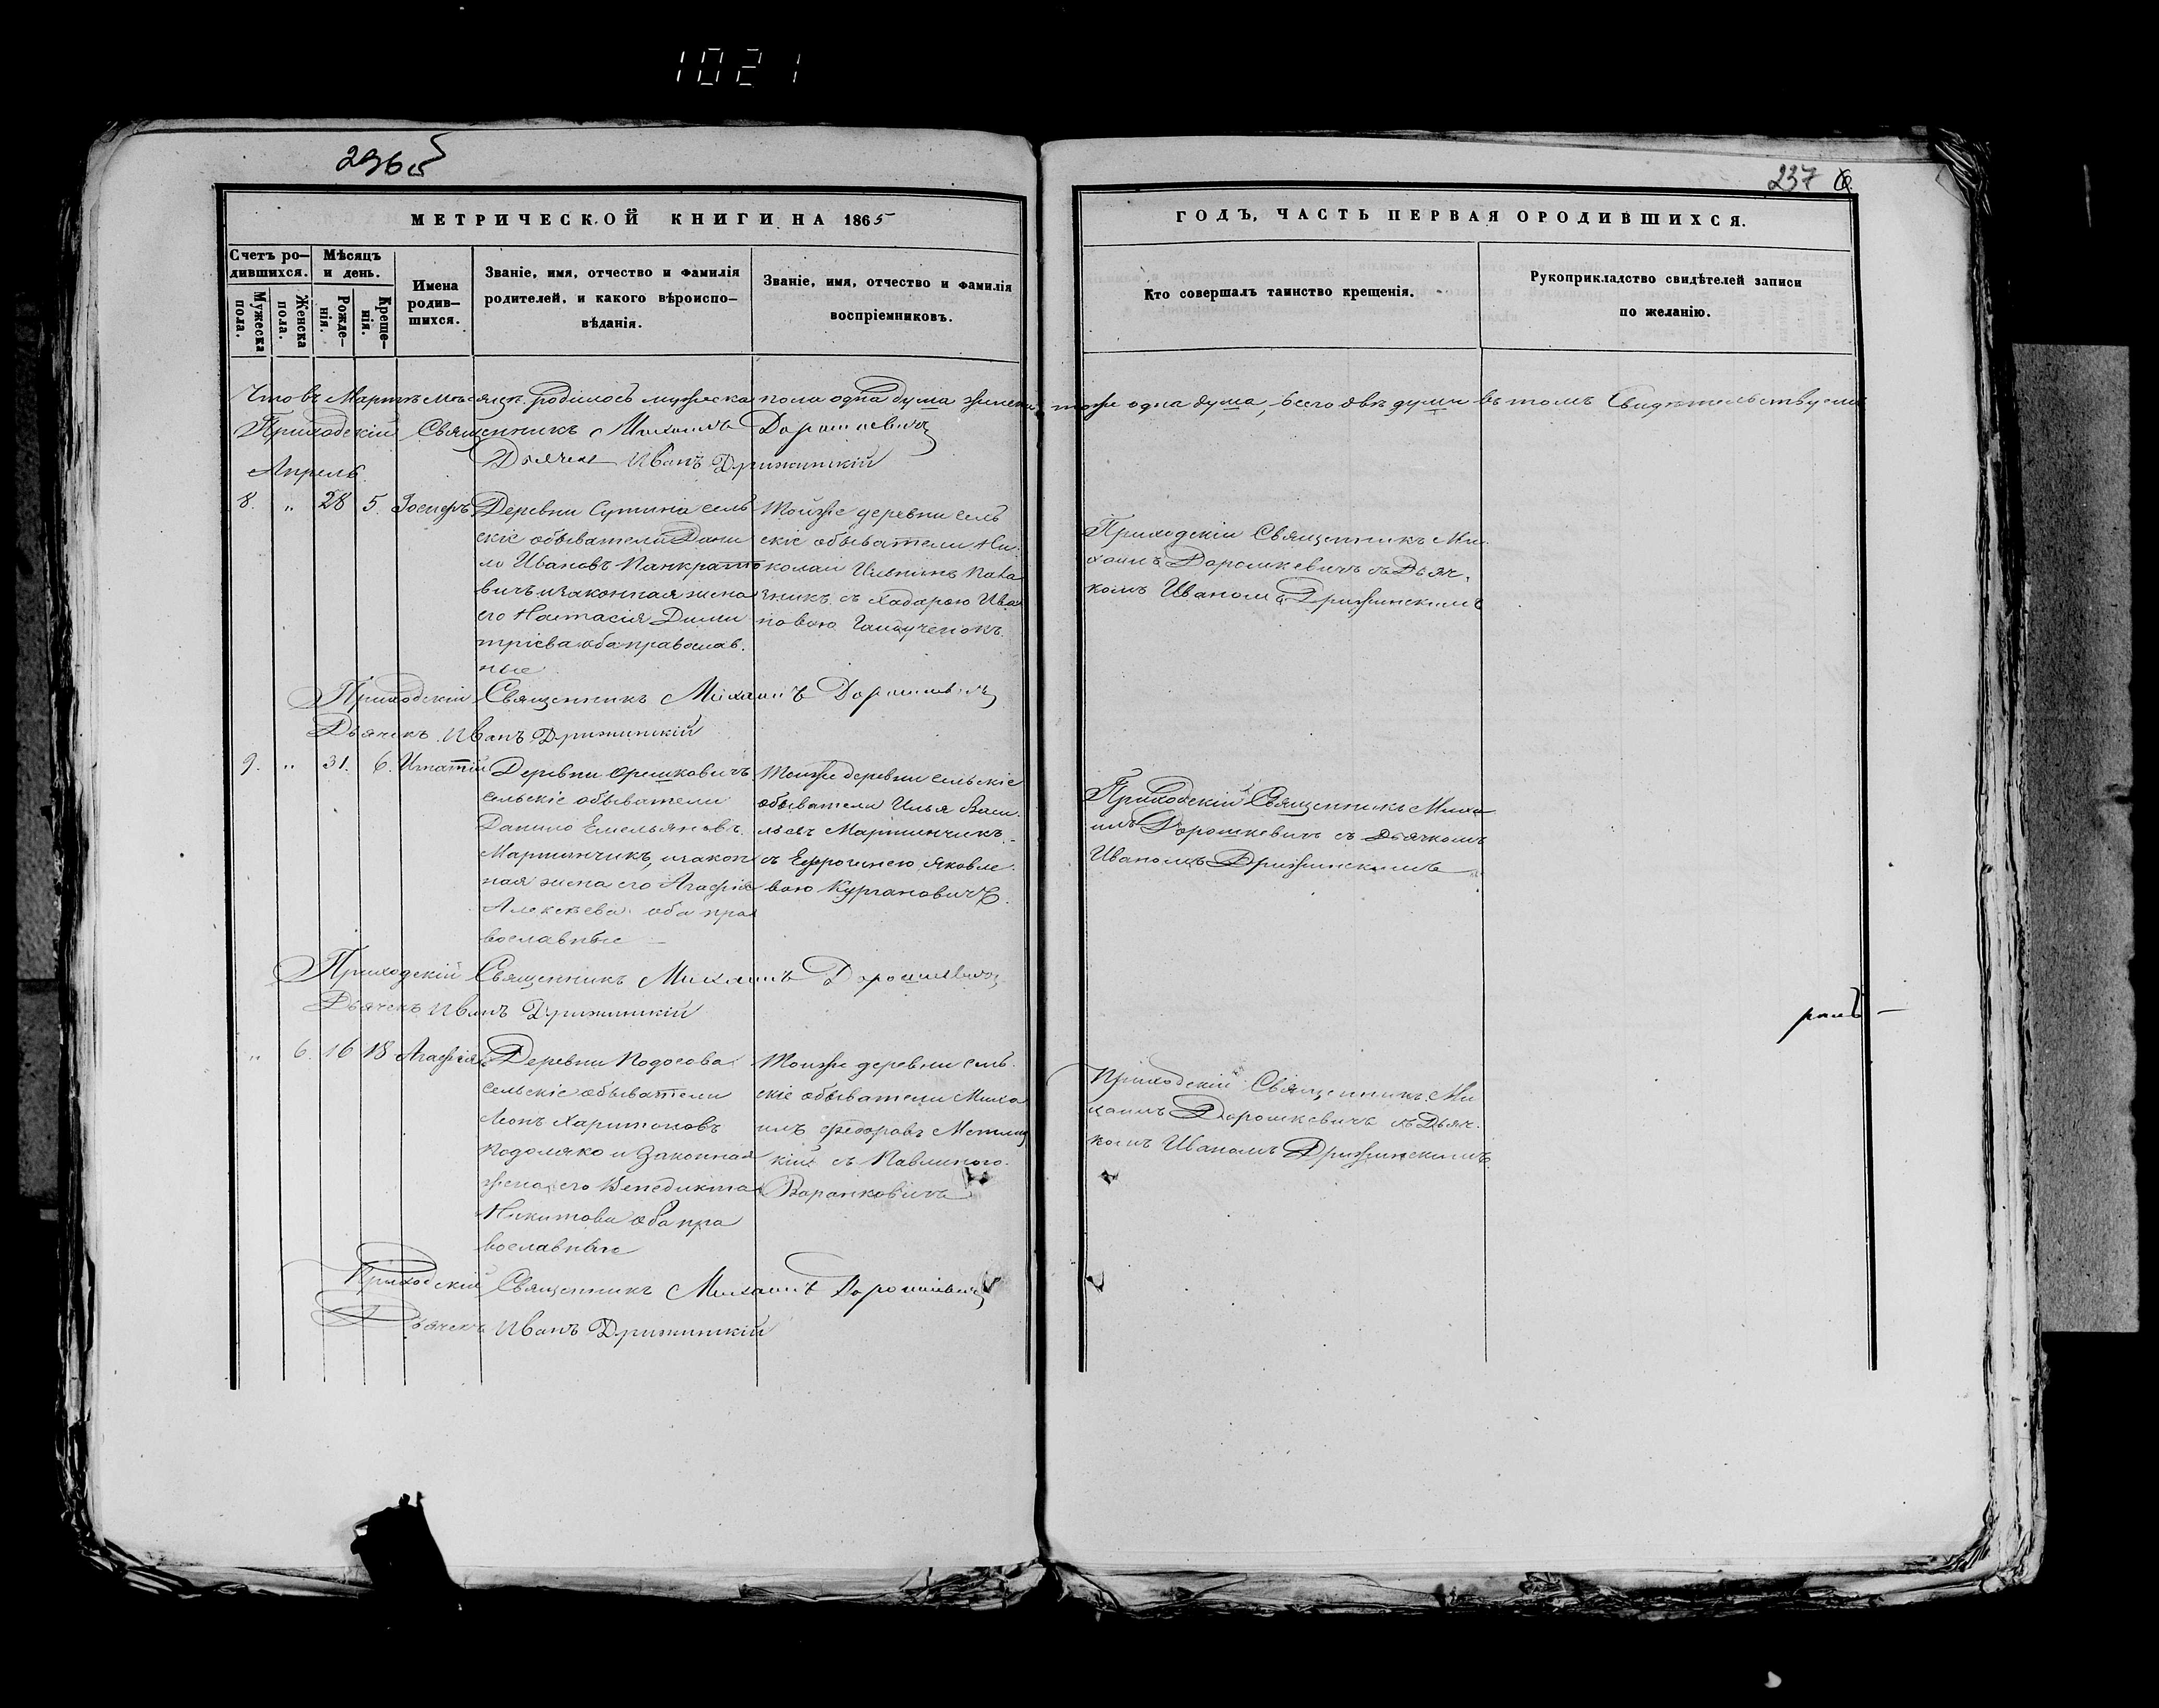 1021
236 об
237
МЕТРИЧЕСКОЙ КНИГИ НА 1865
ГОДЪ, ЧАСТЬ ПЕРВАЯ О РОДИВШИХСЯ.
Счетъ ро-
дившихся.
Мужеска
пола.
Женска
пола.
Мѣсяцъ
и день.
Рожде-
нія.
Креще-
нія.
Имена
родив-
шихся.
Званіе, имя, отчество и фамилія
родителей, и какого вѣроиспо-
вѣданія.
Званіе, имя, отчество и фамилія
воспріемниковъ.
Кто совершалъ таинство крещенія.
Рукоприкладство свидѣтелей записи
по желанію.
Что въ Мартѣ мѣсяцѣ родилось мужеска пола одна душа женска тоже одна душа, всего двѣ души въ томъ Свидѣтельствуемъ
Приходскій Священникъ Михаилъ Дорошкевичъ
Дьячекъ Иванъ Дрижинскій
Апрель.
8. „ 28 5.
Деревни Сутина сель
скіе обыватели Дани
ло Ивановъ Панкрато
вичъ и законная жена
его Настасія Дими
тріева оба православ.
ные
Тойже деревни сель
скіе обыватели Ни
колай Ильинъ
съ Ива
новою
Приходскій Священникъ Ми
хаилъ Дорошкевичъ съ Дьяч.
комъ Иваномъ Дрижинскимъ
Приходскій Священникъ Михаилъ Дорошкевичъ
Дьячекъ Иванъ Дрижинскій
9. „ 31. 6. Игнатій
Деревни Орешковичъ
сельскіе обыватели
Данило Емельяновъ
Мартинчикъ, и закон
ная жена его Агафія
Алексѣева оба пра
вославные
Тойже деревни сельскіе
обыватели Илья Васи.
льевъ Мартинчикъ
съ Ефросинею Яковле
вою Кургановичъ.
Приходскій Священникъ Миха
илъ Дорошкевичъ съ Дьячкомъ
Иваномъ Дрижинскимъ
Приходскій Священникъ Михаилъ Дорошкевичъ
Дьячекъ Иванъ Дрижинскій
„ 6. 16 18 Агафія
Деревни Подосова
сельскіе обыватели
Леонъ Харитоновъ
Подоляко и Законная
жена его Венедикта
Никитова оба пра
вославные
Тойже деревни сель.
скіе обыватели Миха
илъ Федоровъ
съ
Воронковичъ
Приходскій Священникъ Ми
хаилъ Дорошкевичъ съ Дьяч.
комъ Иваномъ Дрижинскимъ
Приходскій Священникъ Михаилъ Дорошкевичъ
Дьячекъ Иванъ Дрижинскій